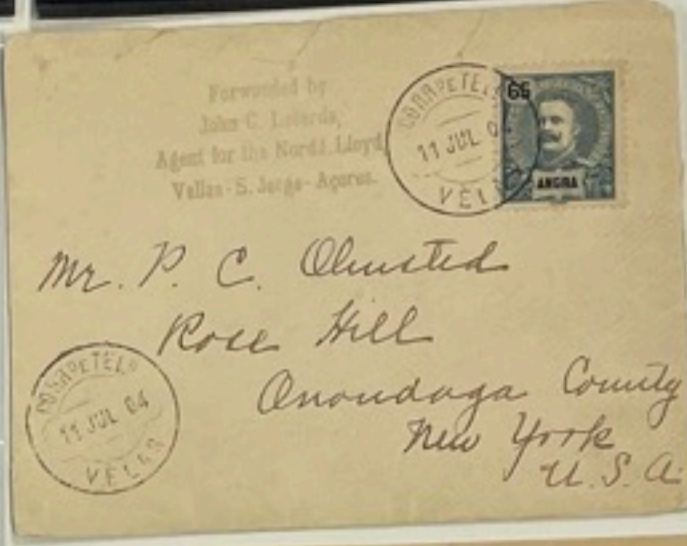 Forwarded by
John C. Lacerda,
Agent for the Nordd. Lloyd,
Vellas - S. Jorge - Açores.
CORRo E TELo
11 JUL 04
VELLAS
65
ANGRA
Mr. P. C. Olmsted
Rose Hill
Onondaga County
New York
U. S. A.
CORRo E TELo
11 JUL 04
VELLAS